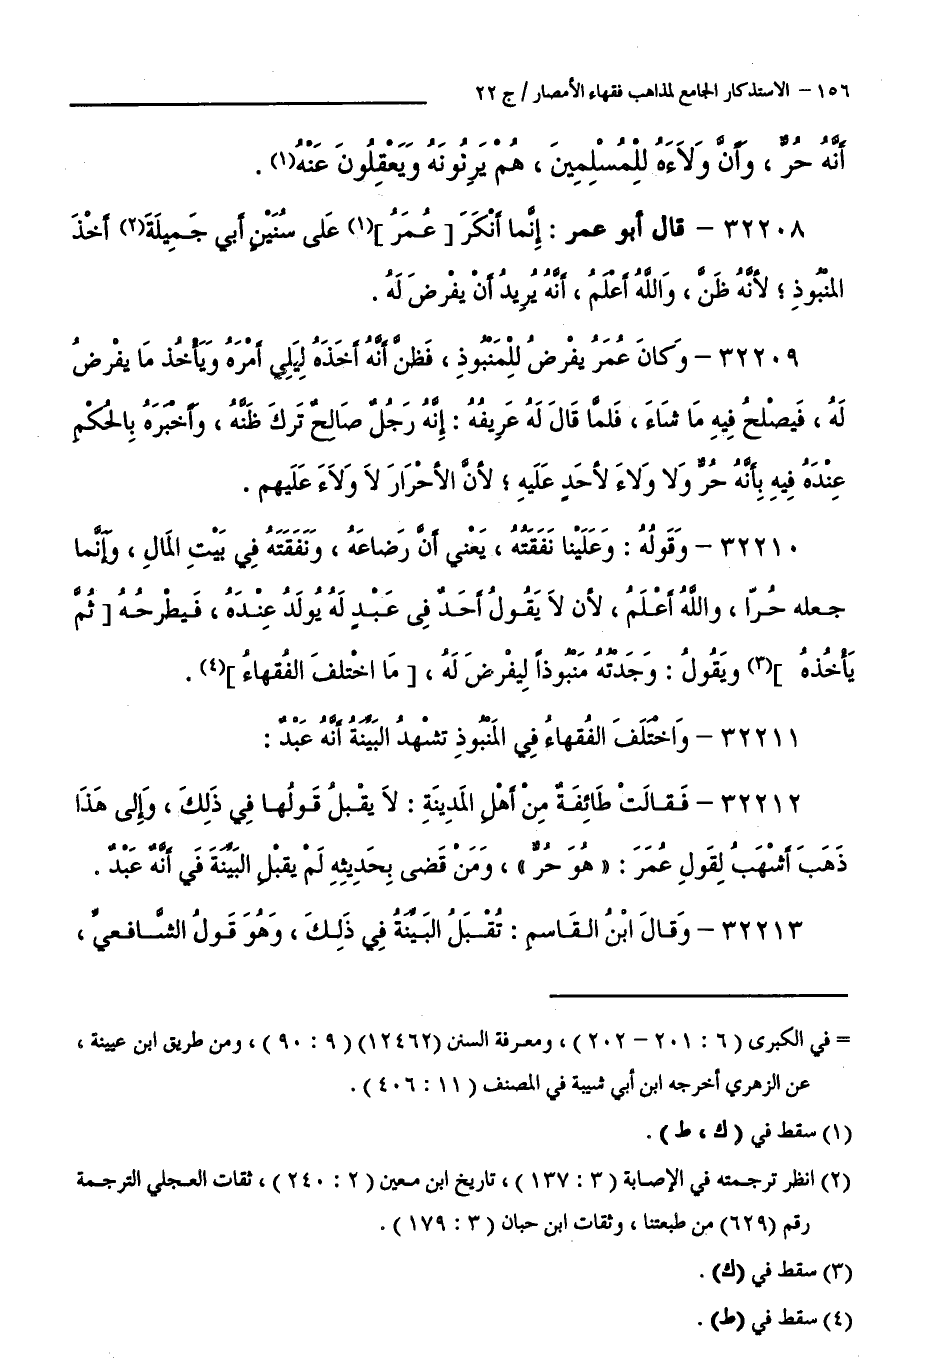 ١٥٦ – الاستذكار الجامع لمذاهب فقهاء الأمصار / ج ٢٢
أَنَّهُ حُرٌّ ، وَأَنَّ وَلَاءَهُ لِلْمُسْلِمِينَ ، هُمْ يَرِثُونَهُ وَيَعْقِلُونَ عَنْهُ(١) .
٣٢٢٠٨ – قال أبو عمر : إِنَّما أَنْكَرَ [ عُمَرُ ](١) عَلى سُنَيْنٍ أبي جَمِيلَةَ(٢) أخْذَ
المَنْبُوذِ ؛ لأنَّهُ ظَنَّ ، وَاللَّهُ أعْلَمُ ، أنَّهُ يُرِيدُ أنْ يفْرضَ لَهُ .
٣٢٢٠٩ – وَكانَ عُمَرُ يفْرضُ لِلْمَنْبُوذِ ، فَظَنَّ أنَّهُ أخَذَهُ لِيَلِي أمْرَهُ وَيَأخُذ مَا يفْرضُ
لَهُ ، فَيصْلحُ فِيهِ مَا شَاءَ ، فَلمَّا قَالَ لَهُ عَرِيفُهُ : إنَّهُ رَجُلٌ صَالحٌ تَركَ ظَنَّهُ ، وأخْبَرَهُ بِالحُكْمِ
عِنْدَهُ فِيهِ بِأَنَّهُ حُرٌّ وَلا وَلَاءَ لأحَدٍ عَلَيهِ ؛ لأنَّ الأحْرَارَ لَا وَلَاءَ عَلَيهم .
٣٢٢١٠ – وَقَولُهُ : وَعَلَيْنا نَفَقَتُهُ ، يَعْني أنَّ رَضاعَهُ ، وَنَفَقَتَهُ فِي بَيْتِ المَالِ ، وَإنَّما
جعله حُرّا ، واللَّهُ أعْلَمُ ، لأن لاَ يَقُولُ أحَدٌ فِى عَبْدٍ لَهُ يُولَدُ عِنْدَهُ ، فَيطْرحُهُ [ ثُمَّ
يَأخُذهُ ](٣) ويَقُولُ : وَجَدْتُهُ مَنْبُوذاً لِيفْرضَ لَهُ ، [ مَا اخْتلفَ الفُقهاءُ ](٤) .
٣٢٢١١ – وَاخْتَلَفَ الفُقهاءُ فِي المَنْبُوذِ تشْهدُ البَيِّنَةُ أنَّهُ عَبْدٌ :
٣٢٢١٢ – فَقالَتْ طَائِفَةٌ مِنْ أهْلِ المَدِينَةِ : لاَ يقْبلُ قَولُها فِي ذَلِكَ ، وَإِلى هَذَا
ذَهَبَ أشْهَبُ لِقولِ عُمَرَ : « هُوَ حُرٌّ » ، وَمَنْ قضى بِحَدِيثِهِ لَمْ يقْبْلِ البَيِّنَةَ فَي أنَّهُ عَبْدٌ .
٣٢٢١٣ – وَقالَ ابْنُ القَاسمِ : تُقْبَلُ البَيِّنَةُ فِي ذَلِكَ ، وَهُوَ قَولُ الشَّافعيِّ ،
= في الكبرى ( ٦ : ٢٠١ – ٢٠٢ ) ، ومعرفة السنن (١٢٤٦٢) ( ٩ : ٩٠ ) ، ومن طريق ابن عيينة ،
عن الزهري أخرجه ابن أبي شيبة في المصنف ( ١١ : ٤٠٦ ) .
(١) سقط في ( ك ، ط ) .
(٢) انظر ترجمته في الإصابة ( ٣ : ١٣٧ ) ، تاريخ ابن معين ( ٢ : ٢٤٠ ) ، ثقات العجلي الترجمة
رقم (٦٢٩) من طبعتنا ، وثقات ابن حبان ( ٣ : ١٧٩ ) .
(٣) سقط في (ك) .
(٤) سقط في (ط) .